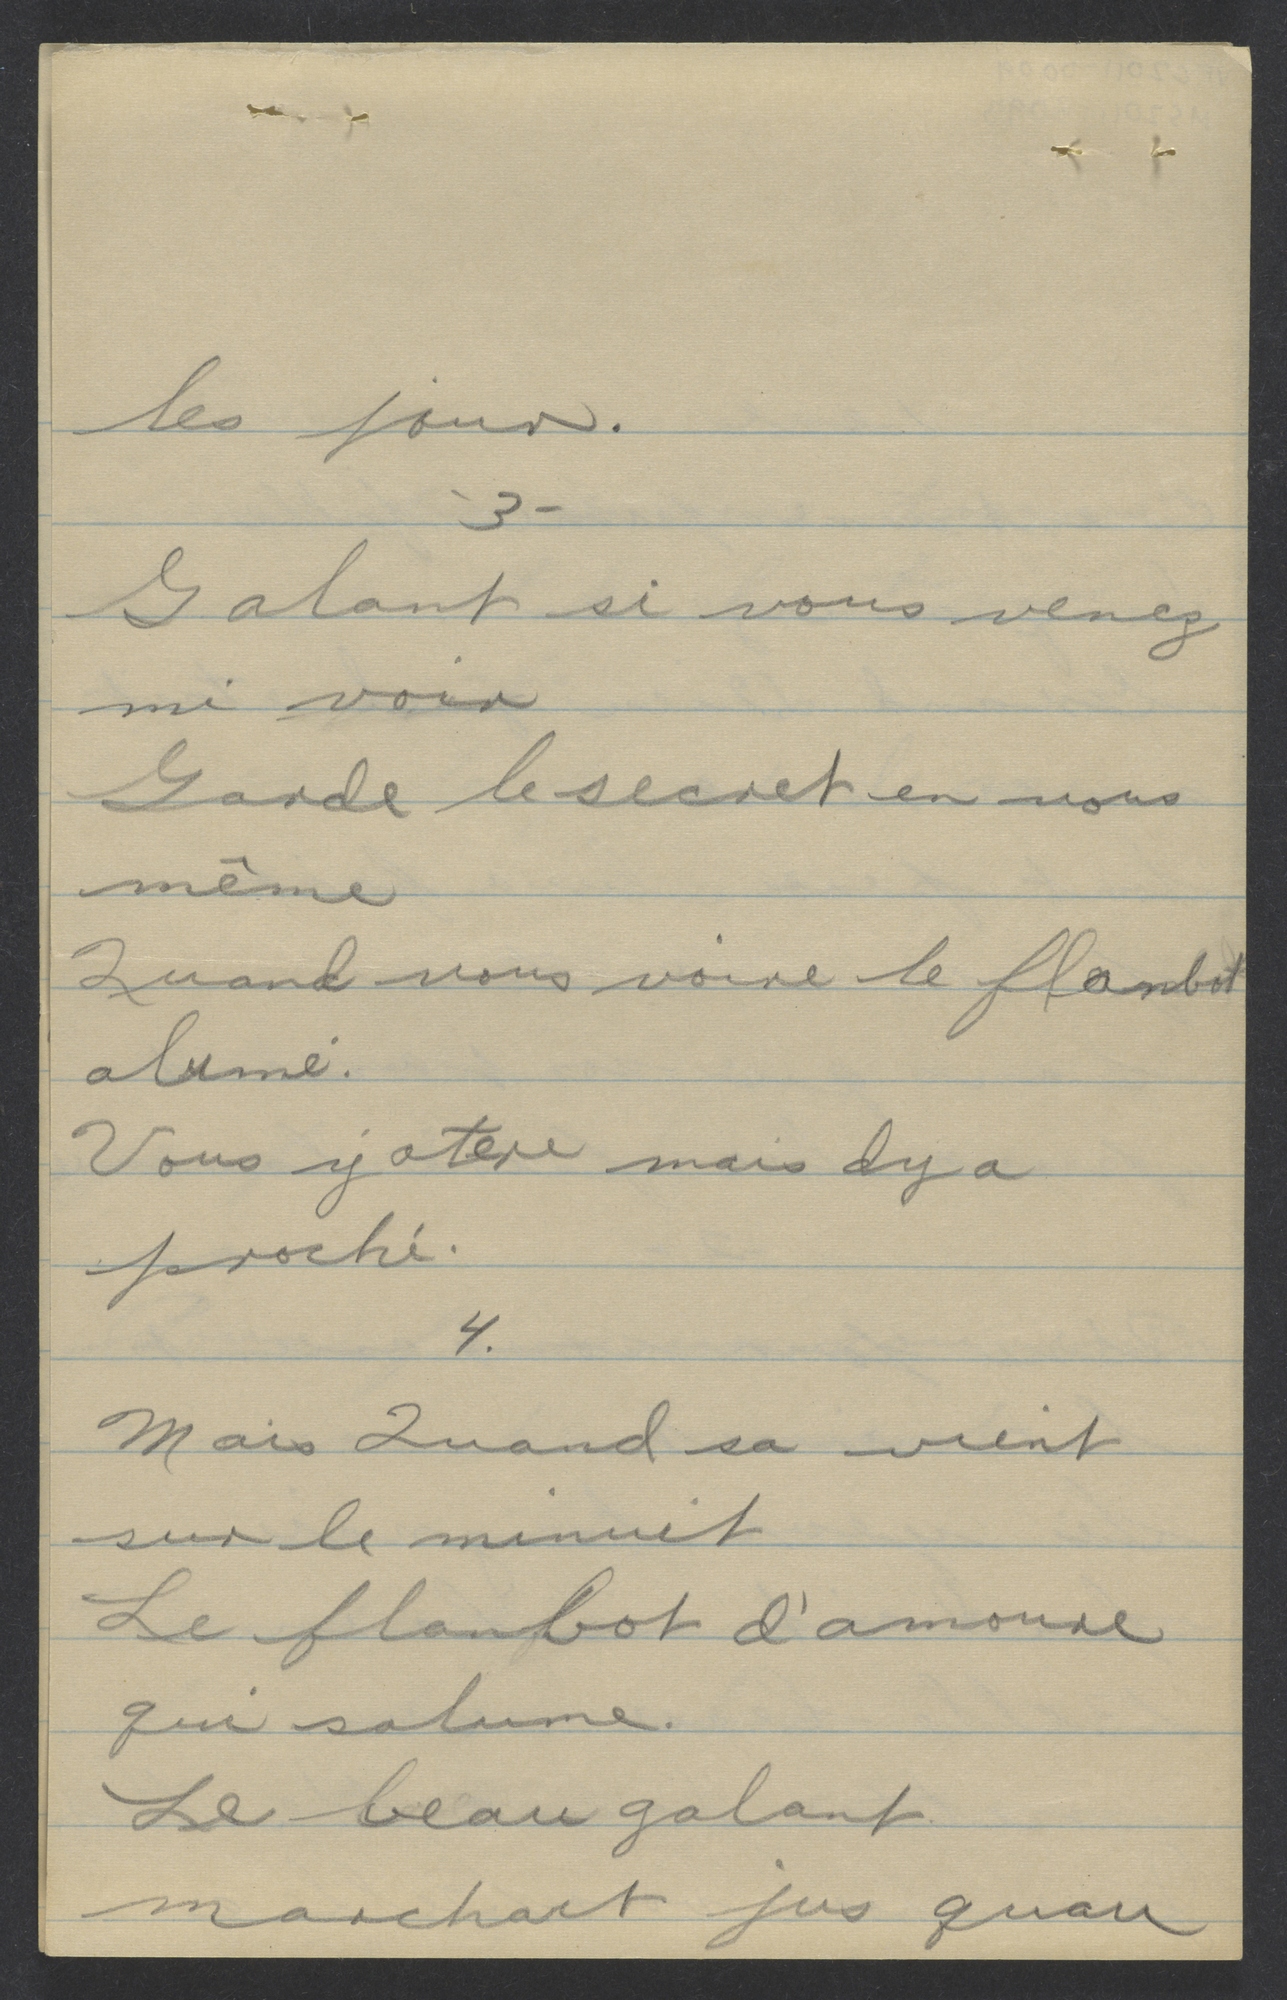 les jour.
-3-
Galant si vous venez
mi voir
Garde le secret en vous
même
Quand vous voire le flanbot
alumé.
Vous y atere mais dy a
proché.
4.
Mais Quand sa vient
sur le minuit
Le flanbot d'amoure
qui salume.
Le beau galant
marchait jus quau